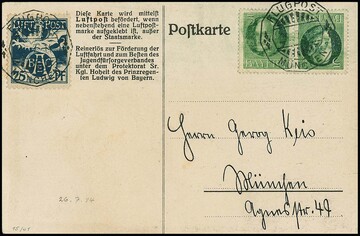 FLUGPOST
25 Pf
Diese Karte wird mittelst
Luftpost befördert, wenn
nebenstehend eine Luftpost-
marke aufgeklebt ist, außer
der Staatsmarke.
Reinerlös zur Förderung der
Luftfahrt und zum Besten des
Jugendfürsorgeverbandes
unter dem Protektorat Sr.
Kgl. Hoheit des Prinzregen-
ten Ludwig von Bayern.
Postkarte
FLUGPOST
MÜNCHEN
Herrn Georg Keis
München
Agnesstr. 49